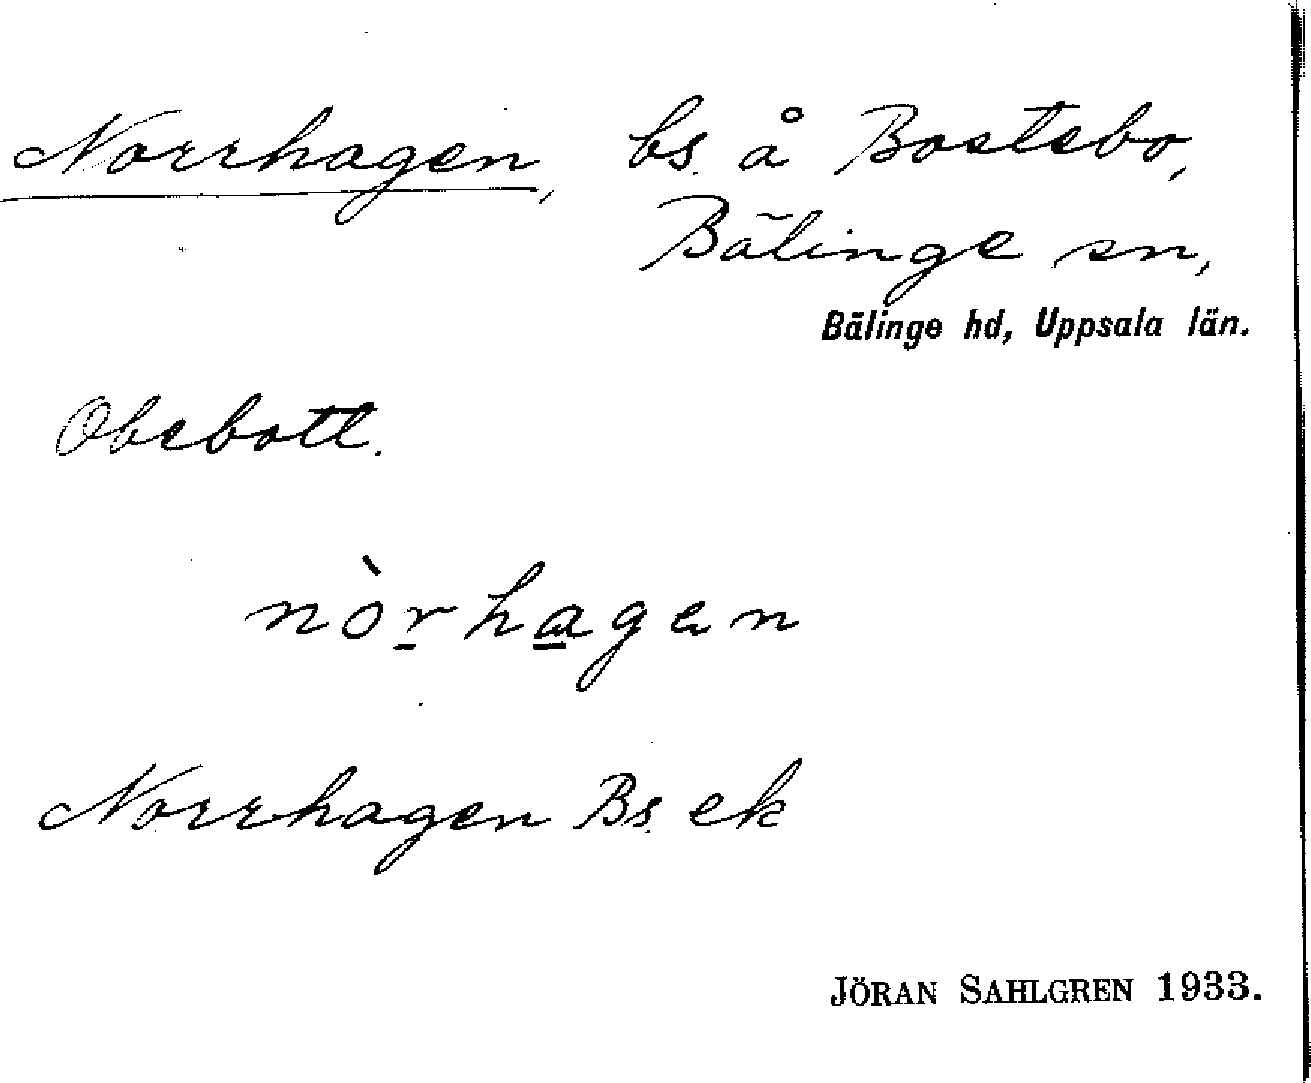 Norrhagen, bs. å Bostebo,
Bälinge sn,
Bälinge hd, Uppsala län.
Obebott.
nòrhagen
Norrhagen Bs. ek
JÖRAN SAHLGREN 1933.